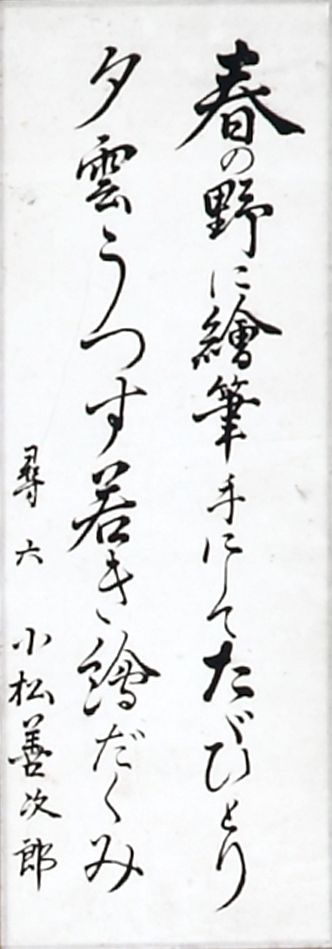 春の野に繪筆手にしてたゞひとり
夕雲うつす若き繪だくみ
尋六 小松善次郎